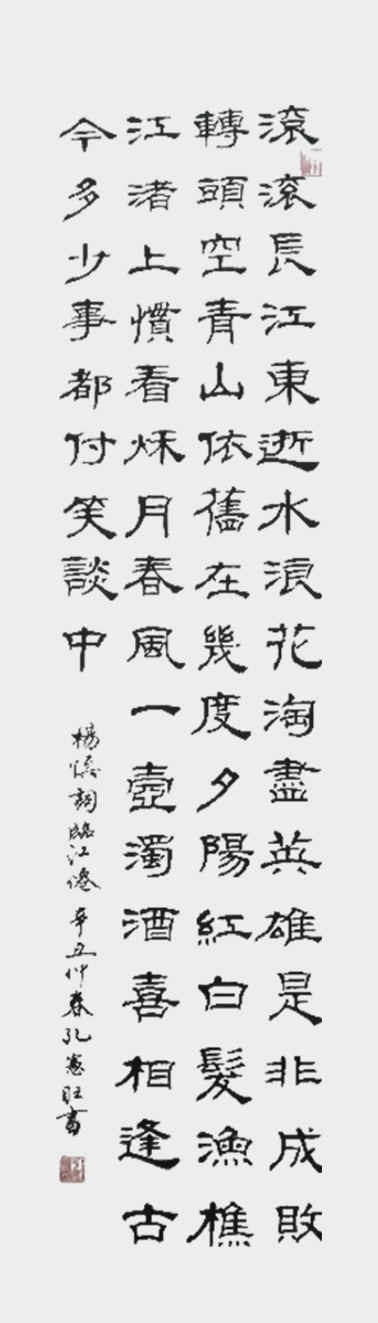 滾滾長江東逝水浪花淘盡英雄是非成敗
轉頭空青山依舊在幾度夕陽紅白髮漁樵
江渚上慣看秌月春風一壺濁酒喜相逢古
今多少事都付笑談中
楊慎詞臨江僊 辛丑仲春孔憲旺書